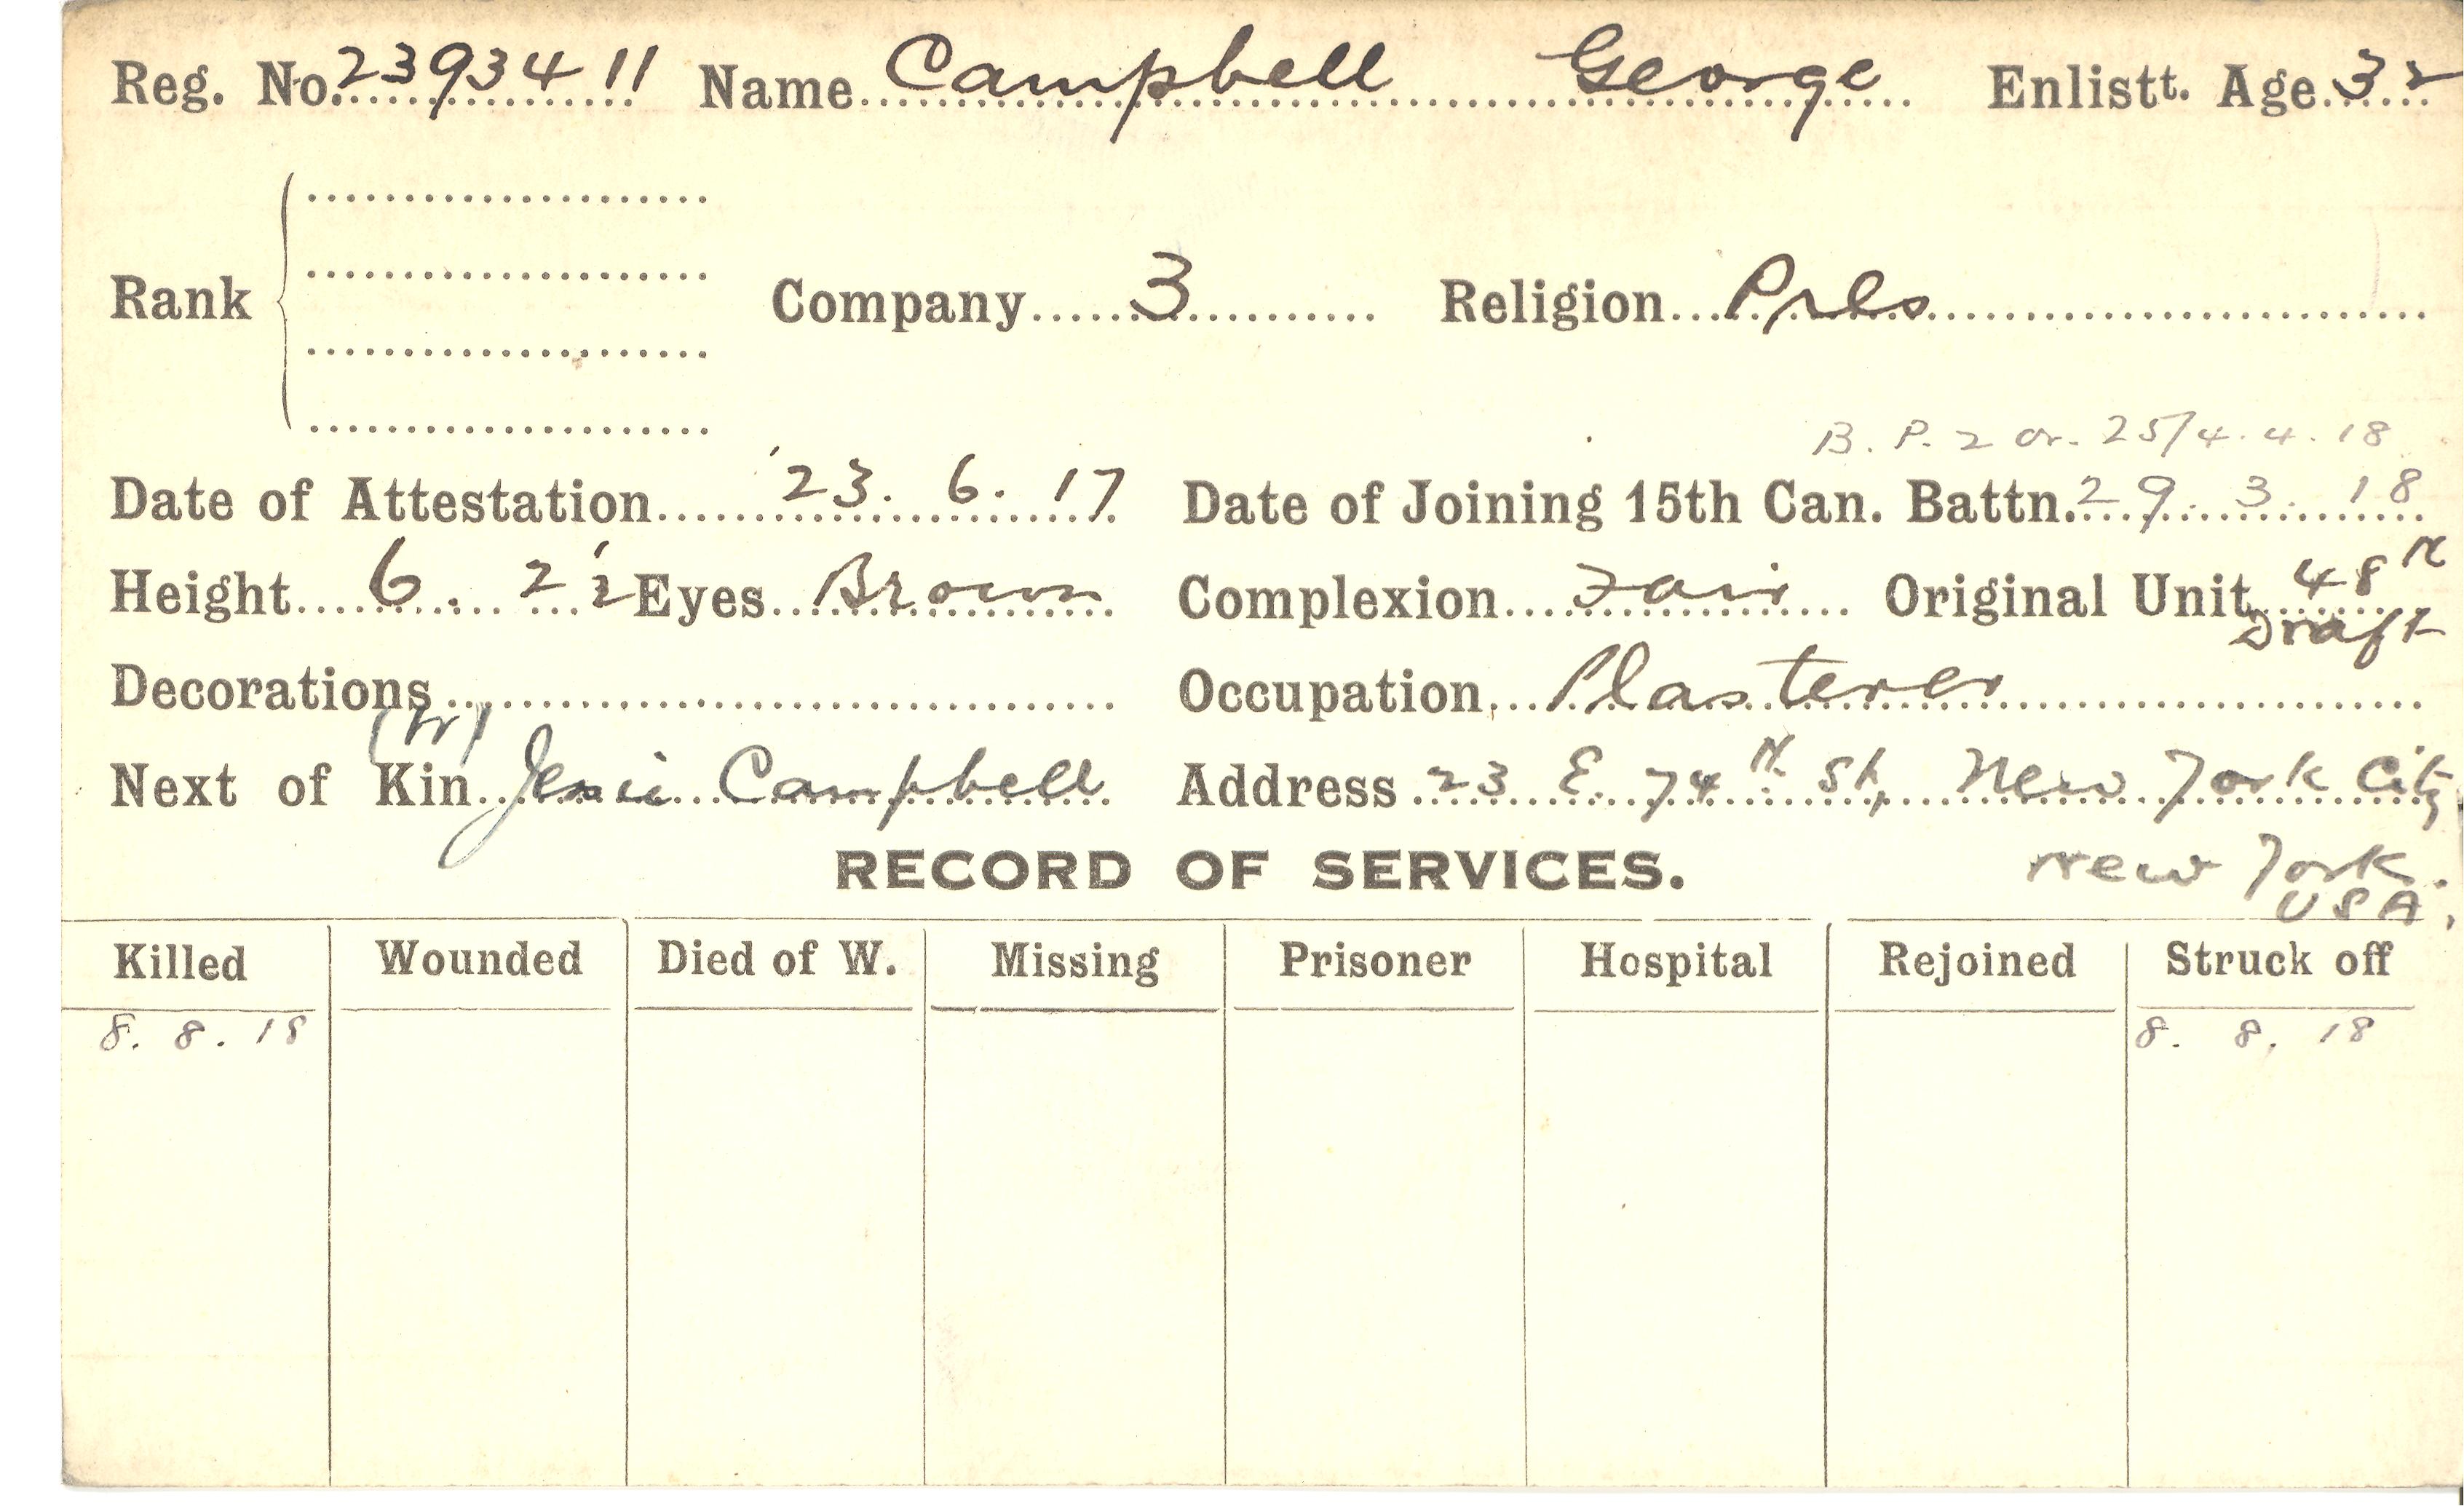 Reg. No. 2393411 Name Campbell George Enlistt. Age 32
Rank Company 3 Religion Pres
B. P. 2 Or. 25/4.4.18
Date of Attestation 23. 6. 17 Date of Joining 15th Can. Battn. 29. 3. 18
Height 6. 2½ Eyes Brown Complexion Fair Original Unit 48th
Draft
Decorations Occupation Plasterer
(W)
Next of Kin Campbell Address 23 E. 74th St, New York City
RECORD OF SERVICES. New York.
USA.
Killed Wounded Died of W. Missing Prisoner Hospital Rejoined Struck off
8. 8. 18 8. 8. 18